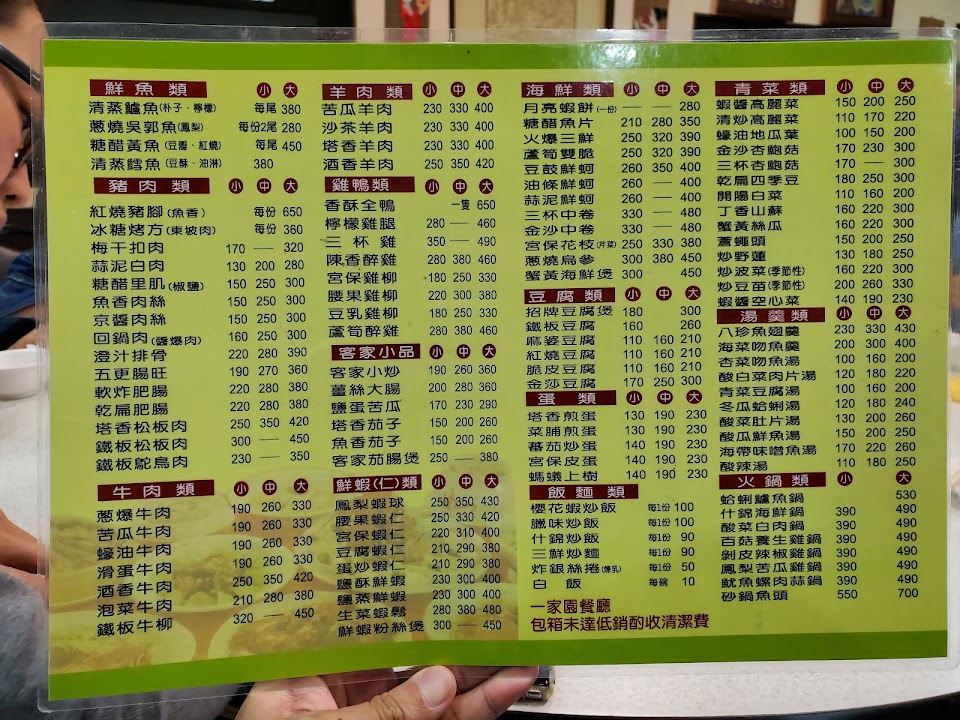 鮮魚類 小 大
清蒸鱸魚(朴子、檸檬) 每尾 380
蔥燒吳郭魚(鳳梨) 每份2尾 280
糖醋黃魚(豆瓣、紅燒) 每尾 450
清蒸鱈魚(豆酥、油淋) 380
豬肉類 小 中 大
紅燒豬腳(魚香) 每份 650
冰糖烤方(東坡肉) 每份 360
梅干扣肉 170 — 320
蒜泥白肉 130 200 280
糖醋里肌(椒鹽) 150 250 300
魚香肉絲 150 250 300
京醬肉絲 150 250 300
回鍋肉(醬爆肉) 160 250 300
橙汁排骨 220 280 390
五更腸旺 190 270 360
軟炸肥腸 220 280 380
乾扁肥腸 220 280 380
塔香松板肉 250 350 420
鐵板松板肉 300 — 450
鐵板鴕鳥肉 230 — 350
牛肉類 小 中 大
蔥爆牛肉 190 260 330
苦瓜牛肉 190 260 330
蠔油牛肉 190 260 330
滑蛋牛肉 190 260 330
酒香牛肉 250 350 420
泡菜牛肉 210 280 380
鐵板牛柳 320 — 450
羊肉類 小 中 大
苦瓜羊肉 230 330 400
沙茶羊肉 230 330 400
塔香羊肉 230 330 400
酒香羊肉 250 350 420
雞鴨類 小 中 大
香酥全鴨 一隻 650
檸檬雞腿 280 — 460
三杯雞 350 — 490
陳香醉雞 280 380 460
宮保雞柳 180 250 330
腰果雞柳 220 300 380
豆乳雞柳 180 250 330
蘆筍醉雞 280 380 460
客家小品 小 中 大
客家小炒 190 260 360
薑絲大腸 200 280 360
鹽蛋苦瓜 170 230 290
塔香茄子 150 200 260
魚香茄子 150 200 260
客家茄腸煲 250 — 380
鮮蝦(仁)類 小 中 大
鳳梨蝦球 250 350 430
腰果蝦仁 250 330 420
宮保蝦仁 220 310 400
豆腐蝦仁 210 290 380
蛋炒蝦仁 210 290 380
鹽酥鮮蝦 230 300 400
鹽蒸鮮蝦 230 300 400
生菜蝦鬆 280 380 480
鮮蝦粉絲煲 300 — 450
海鮮類 小 中 大
月亮蝦餅(一份) — — 280
糖醋魚片 210 280 350
火爆三鮮 250 320 390
蘆筍雙脆 250 320 390
豆鼓鮮蚵 260 350 400
油條鮮蚵 260 — 400
蒜泥鮮蚵 260 — 400
三杯中卷 330 — 480
金沙中卷 330 — 480
宮保花枝(芹菜) 250 330 380
蔥燒烏參 380 — 450
蟹黃海鮮煲 300 450
豆腐類 小 中 大
招牌豆腐煲 180 300
鐵板豆腐 160 260
麻婆豆腐 110 160 210
紅燒豆腐 110 160 210
脆皮豆腐 110 160 210
金莎豆腐 170 250 300
蛋類 小 中 大
塔香煎蛋 130 190 230
菜脯煎蛋 130 190 230
蕃茄炒蛋 140 190 230
宮保皮蛋 140 190 230
螞蟻上樹 140 190 230
飯麵類
櫻花蝦炒飯 每1份 100
臘味炒飯 每1份 100
什錦炒飯 每1份 90
三鮮炒麵 每1份 90
炸銀絲捲(煉乳) 每1份 50
白飯 每碗 10
一家園餐廳
包箱未達低銷酌收清潔費
青菜類 小 中 大
蝦醬高麗菜 150 200 250
清炒高麗菜 110 170 220
蠔油地瓜葉 100 150 200
金沙杏鮑菇 170 230 300
三杯杏鮑菇 170 — 300
乾扁四季豆 180 250 300
開陽白菜 110 160 200
丁香山蘇 160 220 300
蟹黃絲瓜 160 220 300
蒼蠅頭 150 200 250
炒野蓮 130 180 250
炒波菜(季節性) 160 220 300
炒豆苗(季節性) 200 260 330
蝦醬空心菜 140 190 230
湯羹類 小 中 大
八珍魚翅羹 230 330 430
海菜吻魚羹 200 300 400
杏菜吻魚湯 100 160 200
酸白菜肉片湯 120 180 220
青菜豆腐湯 100 160 200
冬瓜蛤蜊湯 120 180 240
酸菜肚片湯 130 200 260
酸瓜鮮魚湯 150 200 250
海帶味噌魚湯 170 220 260
酸辣湯 110 180 250
火鍋類 小 大
蛤蜊鱸魚鍋 530
什錦海鮮鍋 390 490
酸菜白肉鍋 390 490
百菇養生雞鍋 390 490
剝皮辣椒雞鍋 390 490
鳳梨苦瓜雞鍋 390 490
魷魚螺肉蒜鍋 390 490
砂鍋魚頭 550 700